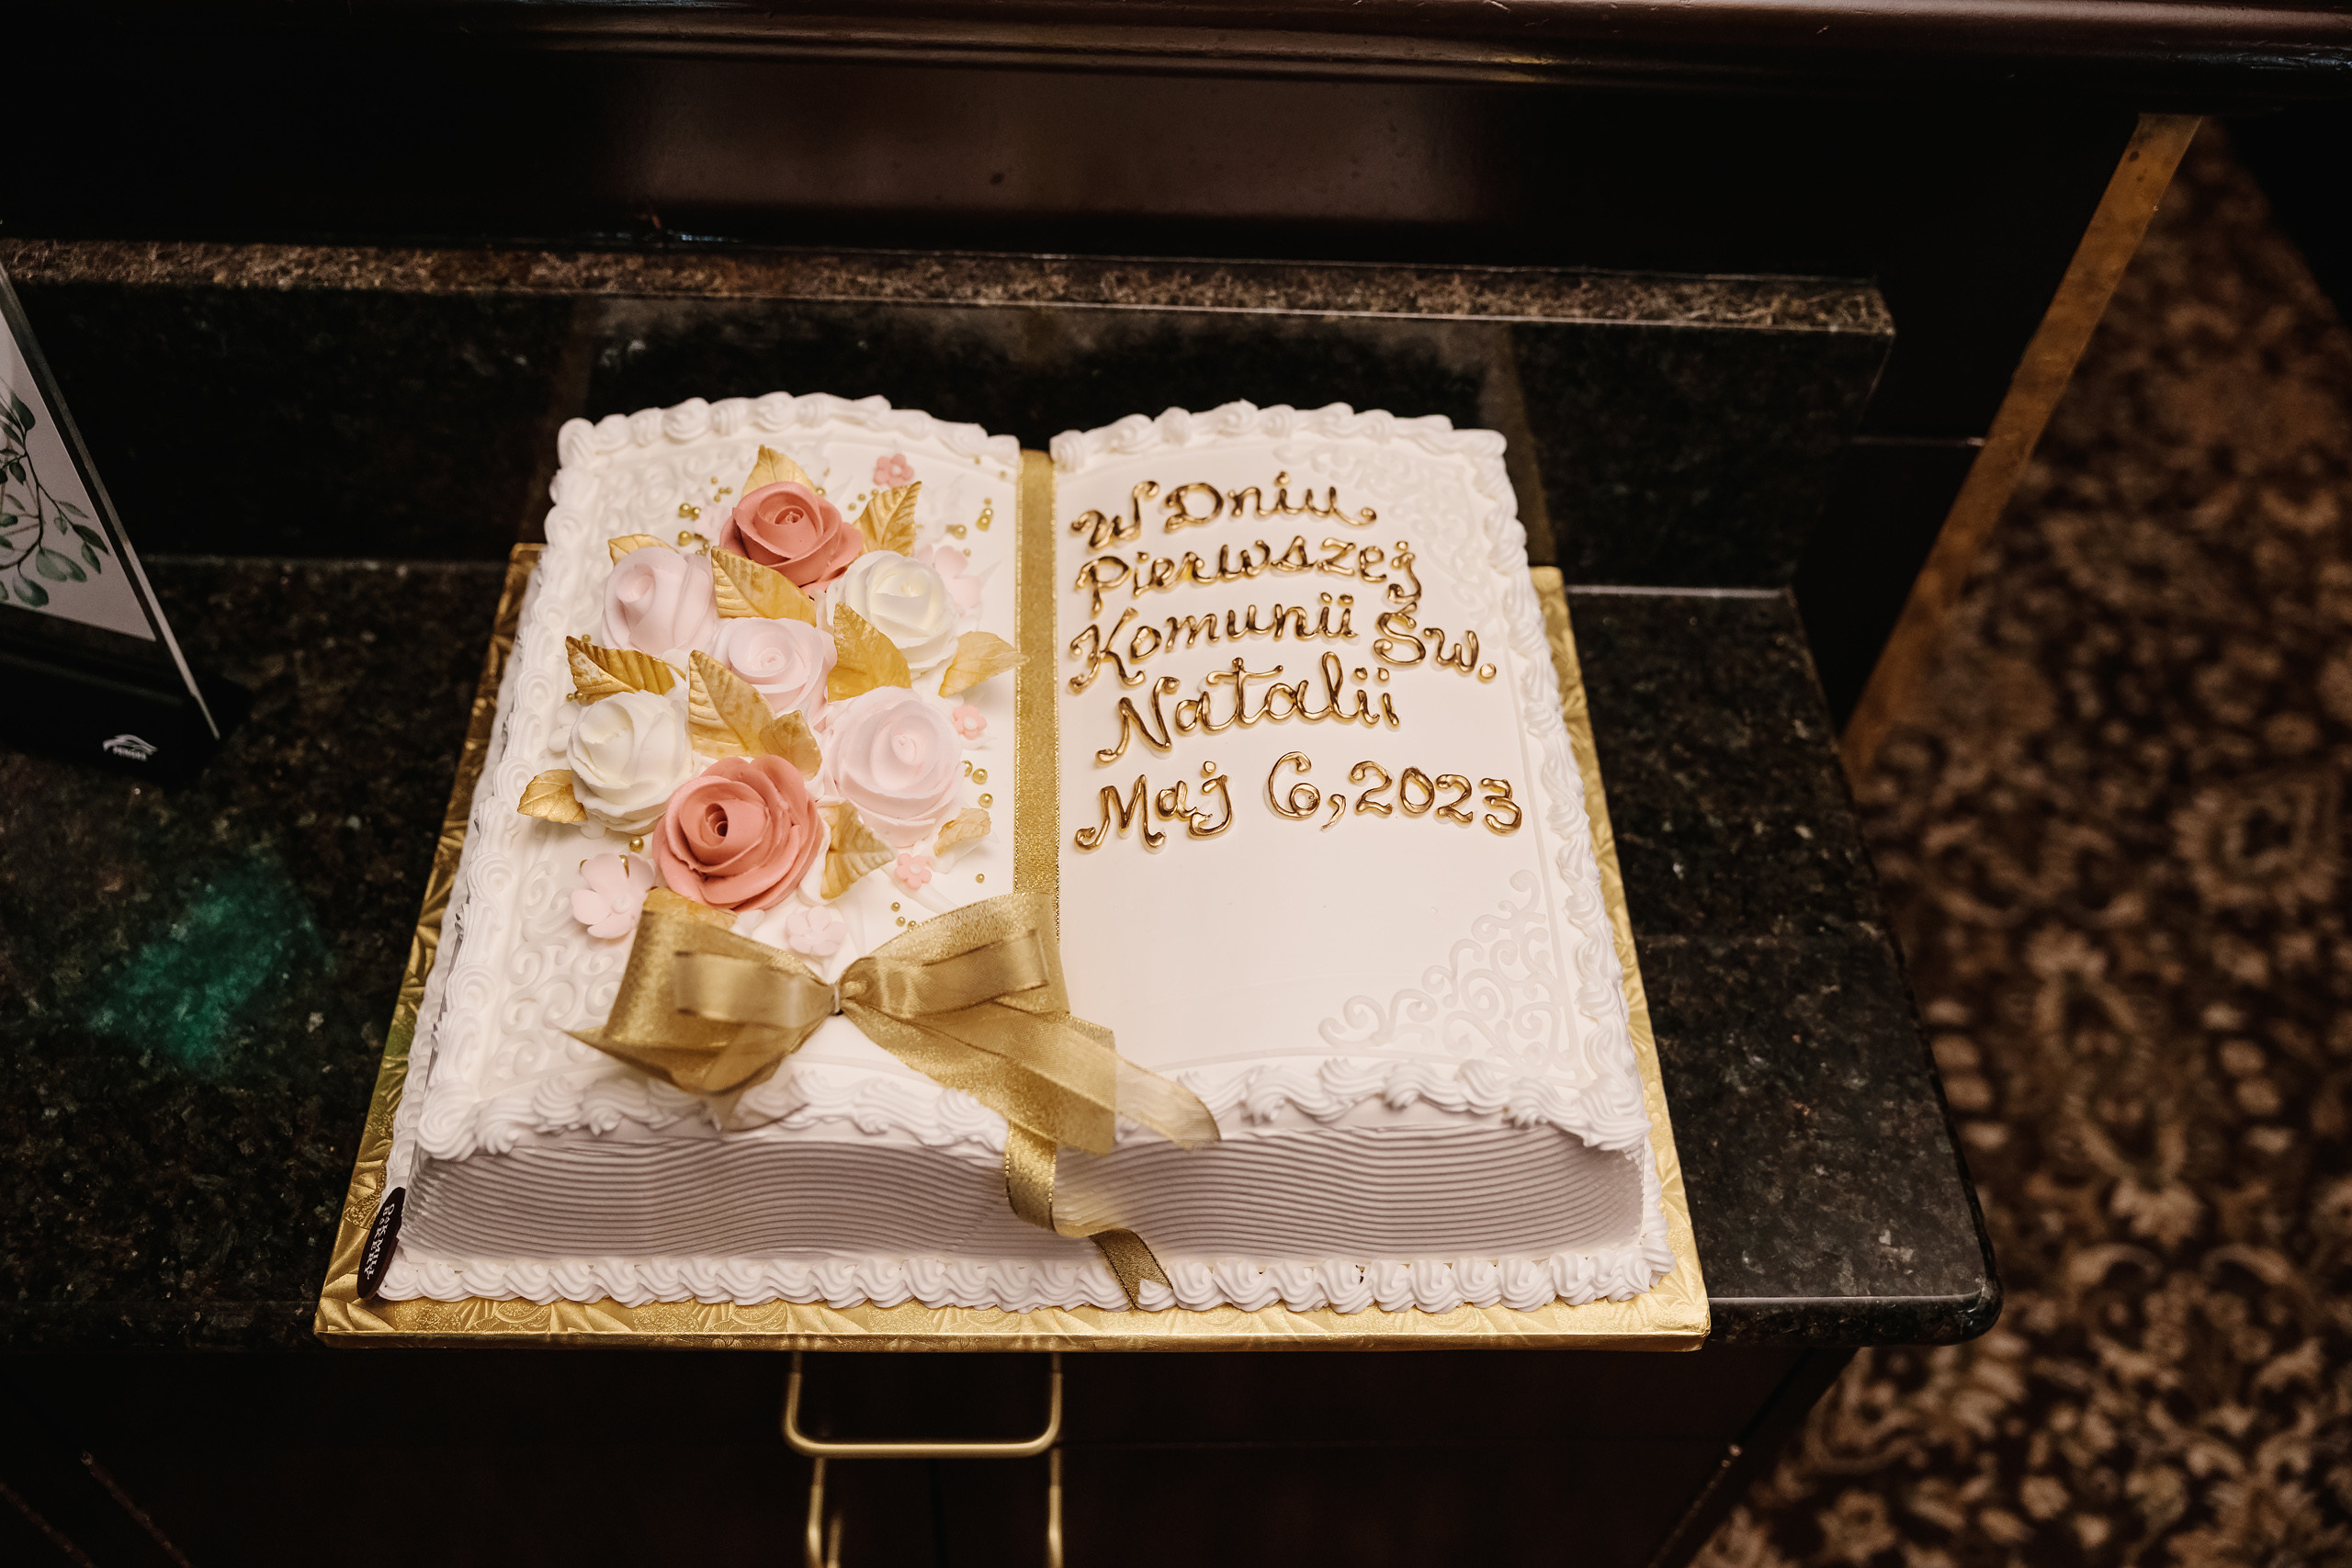 W Dniu
Pierwszej
Komunii Św.
Natalii
Maj 6, 2023